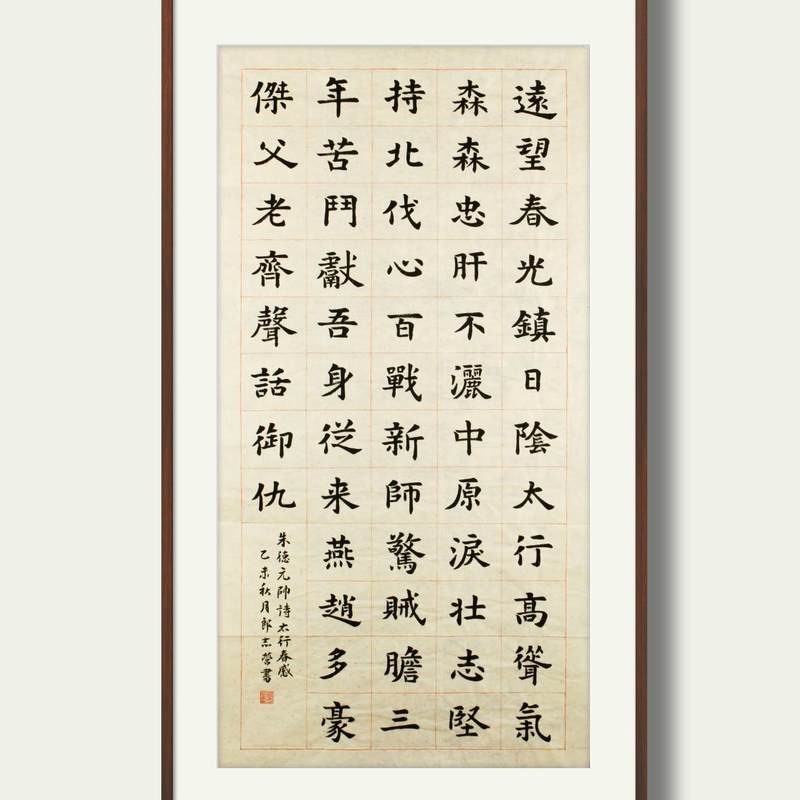 遠望春光鎮日陰太行髙聳氣
森森忠肝不灑中原淚壯志堅
持北伐心百戰新師驚賊膽三
年苦鬥獻吾身從来燕趙多豪
傑父老齊聲話御仇
朱德元帥詩太行春感
乙未秋月郎志營書